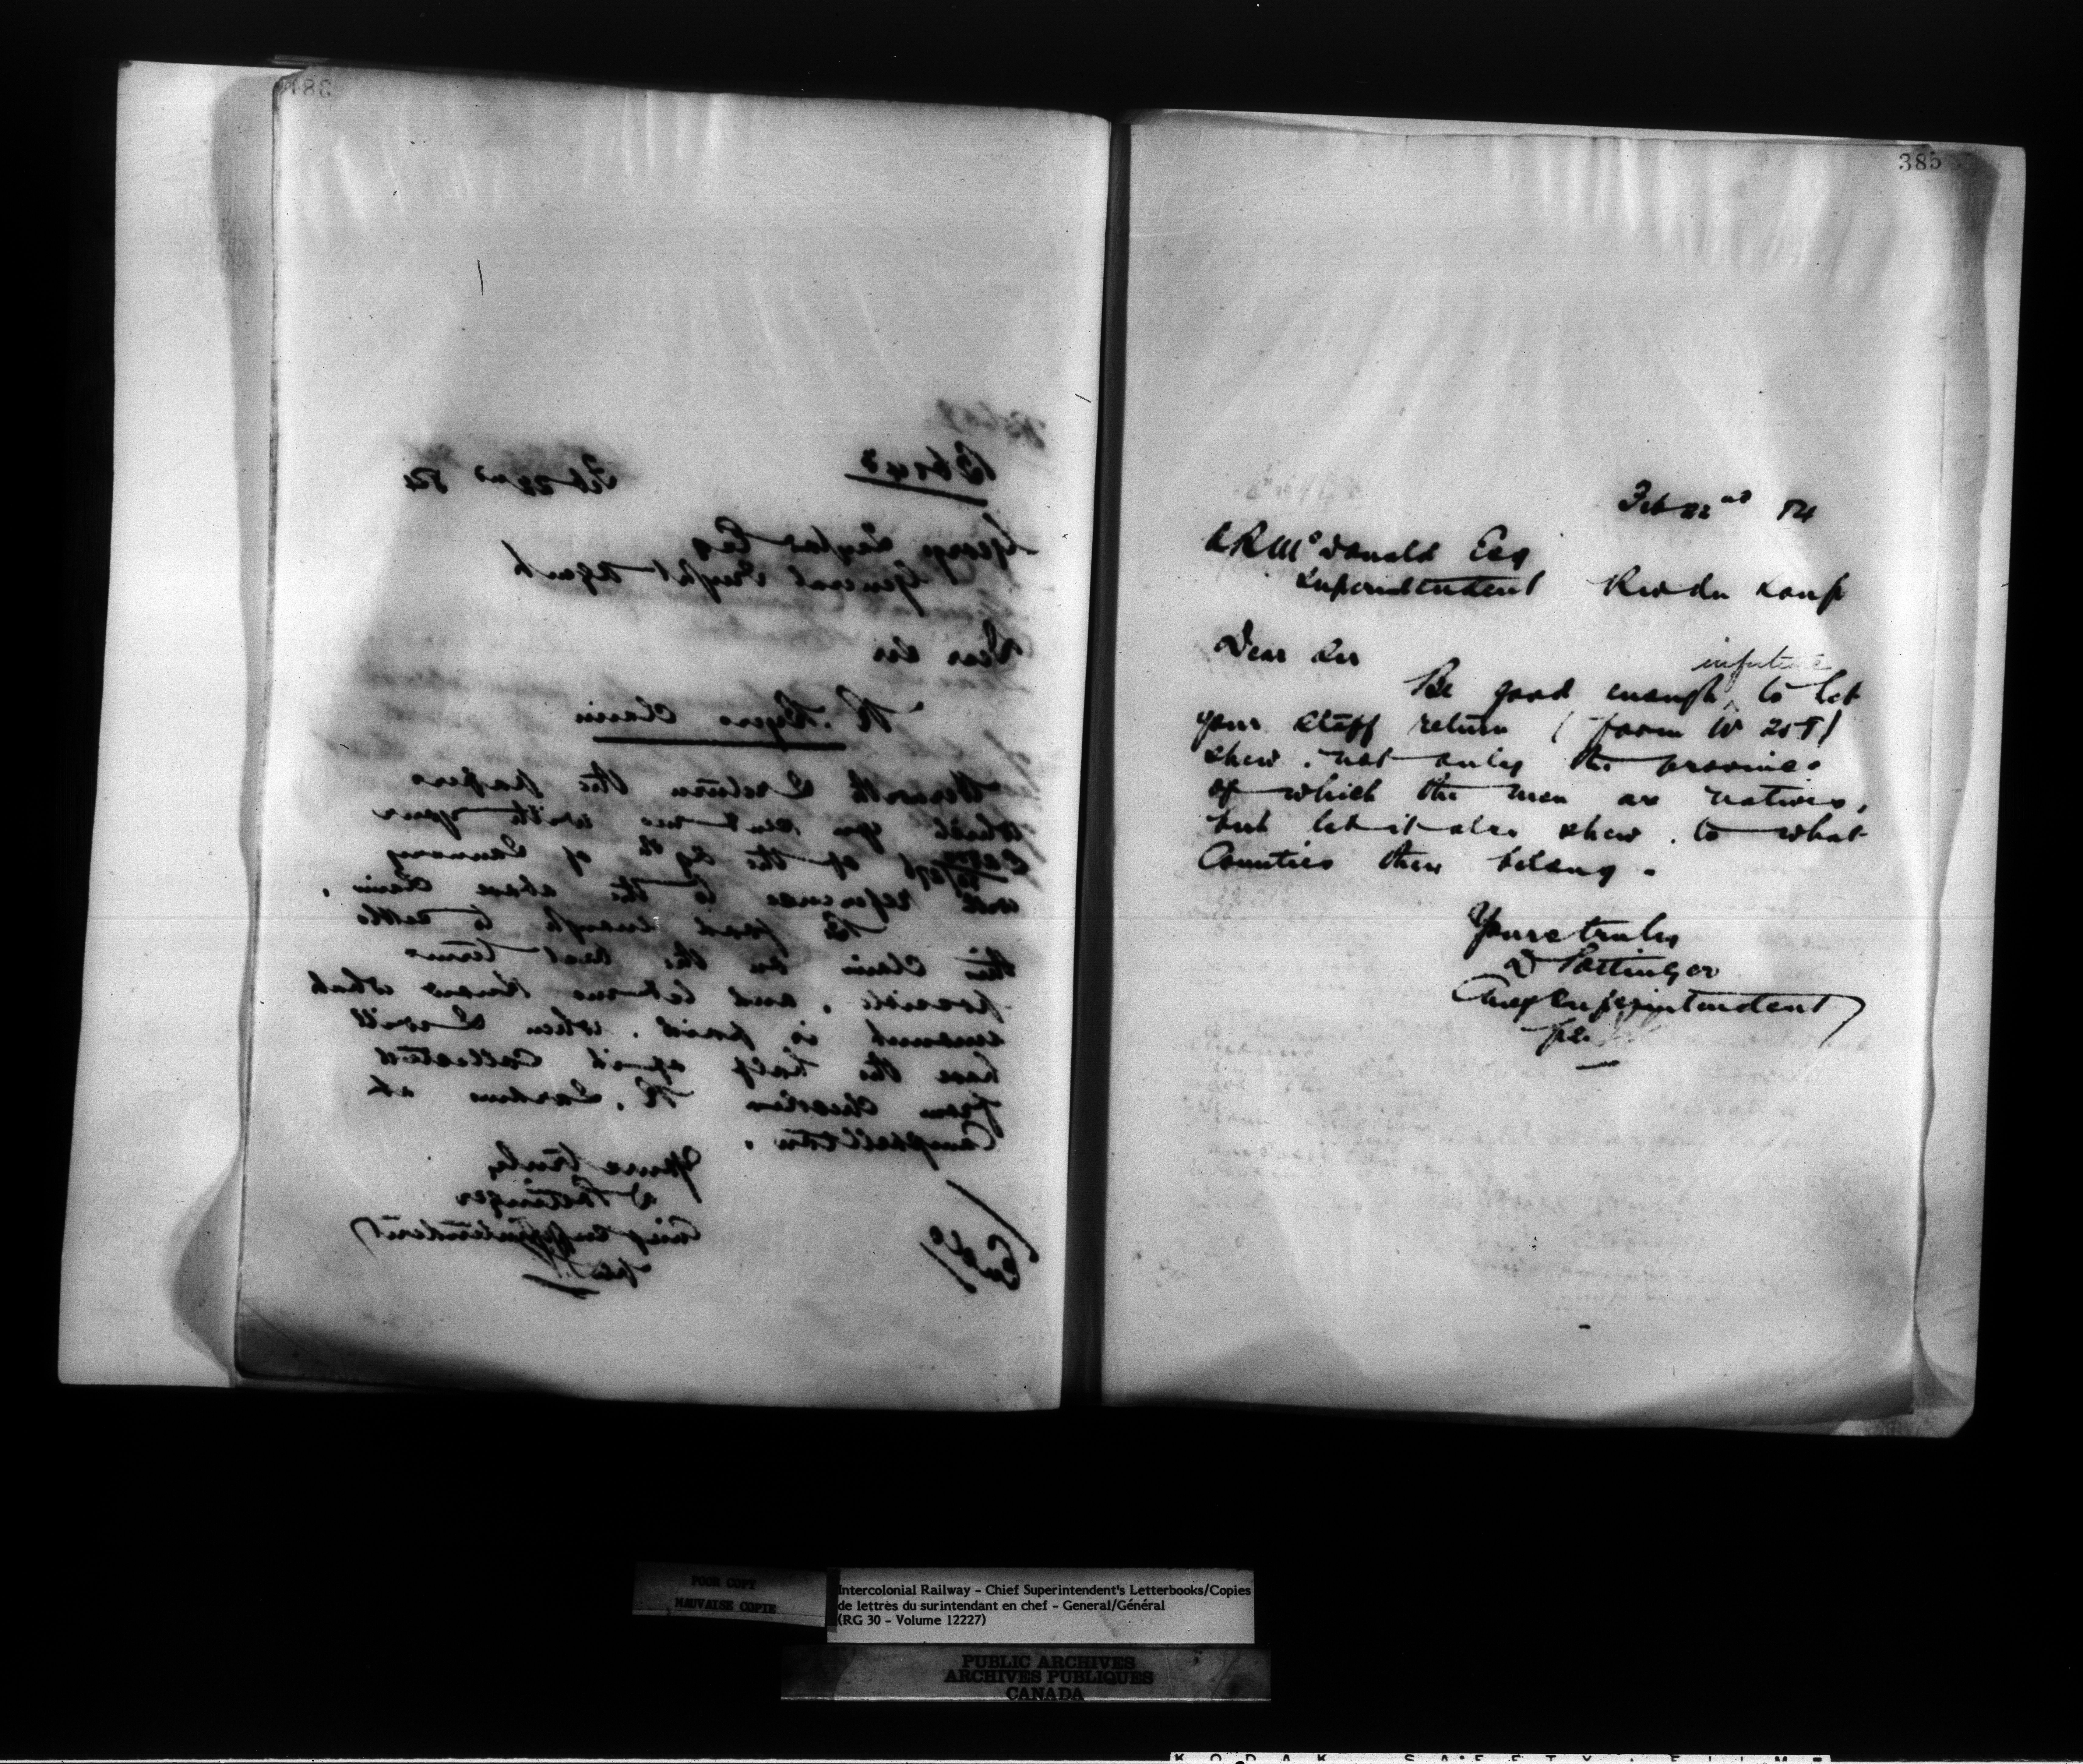 384
Feb 22nd 84
George Taylor Esq
General Freight Agent
Dear Sir
Claim
Herewith I return the papers
which you sent me with your
of the 29th of January
with reference to the above claim.
Be good enough to settle
this claim on the best terms
possible, and let me know what
amount is paid, when I will
have the half of it collected
from Charles R. at
Campbellton.
Yours truly
D Pottinger
Chief Superintendent
385
Feb 22nd 84
A R McDonald Esq
Superintendent Riv du Loup
Dear Sir
in future
Be good enough to let
your staff return (form W 25T)
shew, not only the province
of which the men are natives,
but let it also shew, to what
Counties they belong.
Yours truly
D Pottinger
Chief Superintendent
POOR COPY
MAUVAISE COPIE
Intercolonial Railway - Chief Superintendent's Letterbooks/Copies
de lettres du surintendant en chef - General/Général
(RG 30 - Volume 12227)
PUBLIC ARCHIVES
ARCHIVES PUBLIQUES
CANADA
KODAK SAFETY FILM